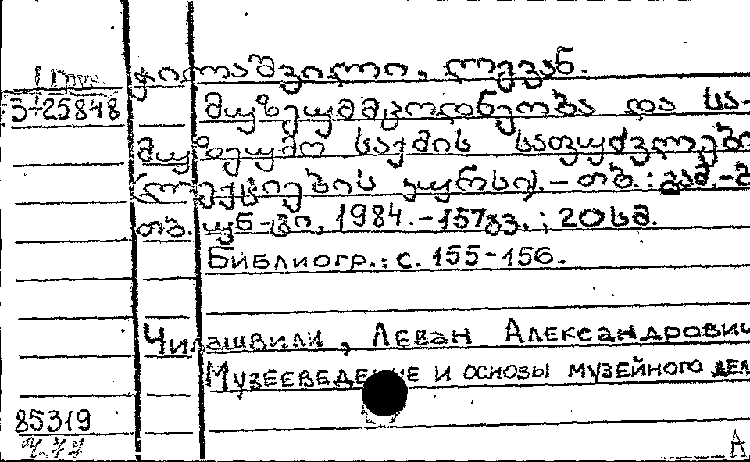 ჭილაშვილი, ლევან.
3-25848 მუზეუმმცოდნეობა და სა-
მუზეუმო საქმის საფუძვლები
(ლექციების კურსი). – თბ.: გამ.-ბ
თბ. უნ-ტი, 1984. – 157გვ.; 20სმ.
Библиогр.: с. 155-156.
Чилашвили, Леван Александрович
Музееведение и основы музейного дел
85319
А